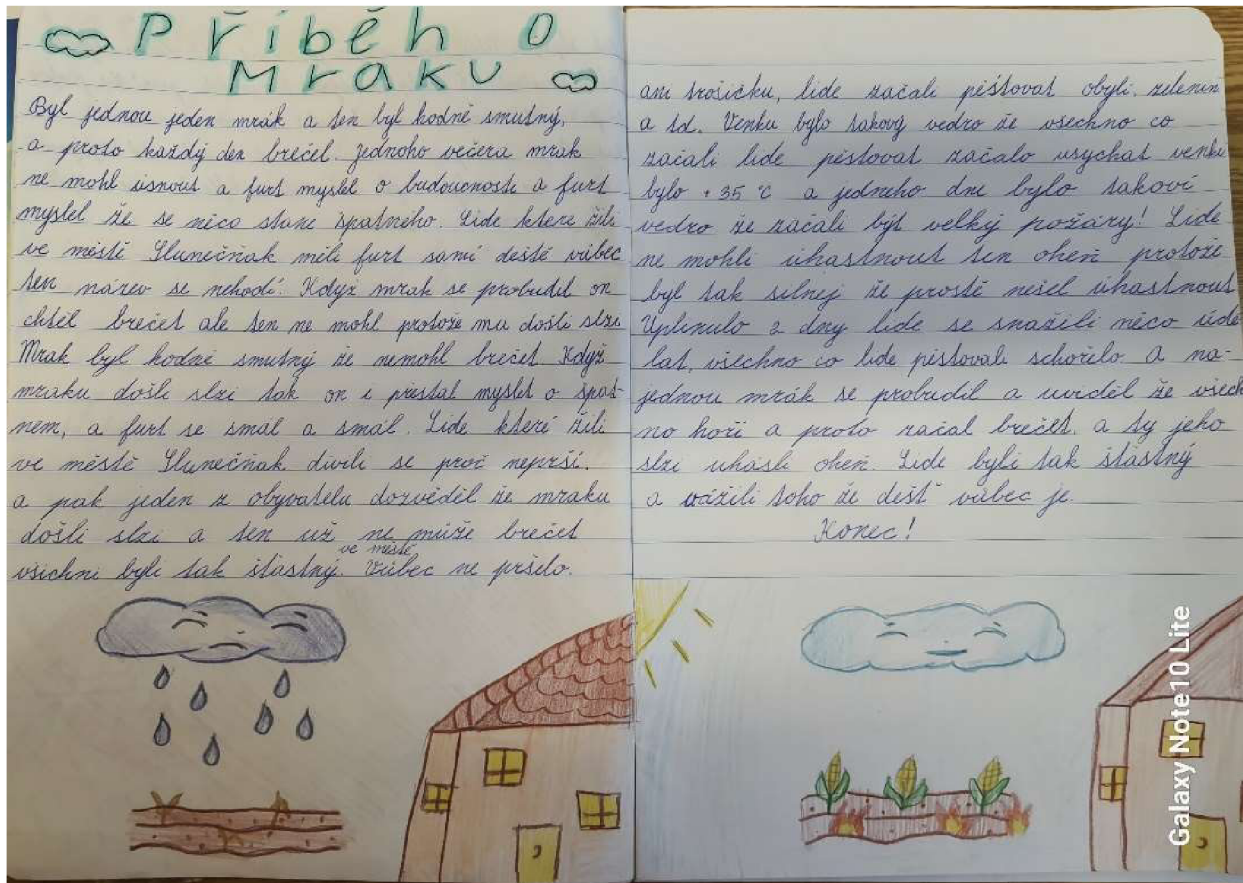 Příběh o
Mraku
Byl jednou jeden mrák a ten byl hodně smutný,
a proto každý den brečel. jednoho večera mrak
ne mohl usnout a furt myslel o budoucnosti a furt
myslel že se něco stane špatneho. Lide ktere žili
ve městě Slunečňak měli furt samí deště vůbec
ten název se nehodí. Když mrak se probudil on
chtěl brečet ale ten ne mohl protože mu došli slzi
Mrak byl hodně smutný že nemohl brečet Když
mraku došli slzi tak on i přestal myslet o špat-
nem, a furt se smál a smál. Lide které žili
ve městě Slunečňak divili se proč neprší.
a pak jeden z obyvatelu dozvěděl že mraku
došli slzi a ten už ne může brečet
ve městě
všichni byli tak šťastný. Vůbec ne pršelo.
ani trošičku, lide začali pěstovat obyli, zelenin
a td. Venku bylo takový vedro že všechno co
začali lide pěstovat začalo usychat venku
bylo +35 °C a jednoho dne bylo takoví
vedro že začali být velký požáry! Lide
ne mohli uhastnout ten oheň protože
byl tak silnej že prostě nešel uhastnout
Uplinulo 2 dny lide se snažili něco udě
lat, všechno co lide pěstovali schořelo. A na-
jednou mrák se probudil a uviděl že všech
no hoří a proto začal brečet. a ty jeho
slzi uhasli oheň. Lide byli tak šťastný
a vážili toho že dešť vůbec je.
Konec!
Galaxy Note10 Lite